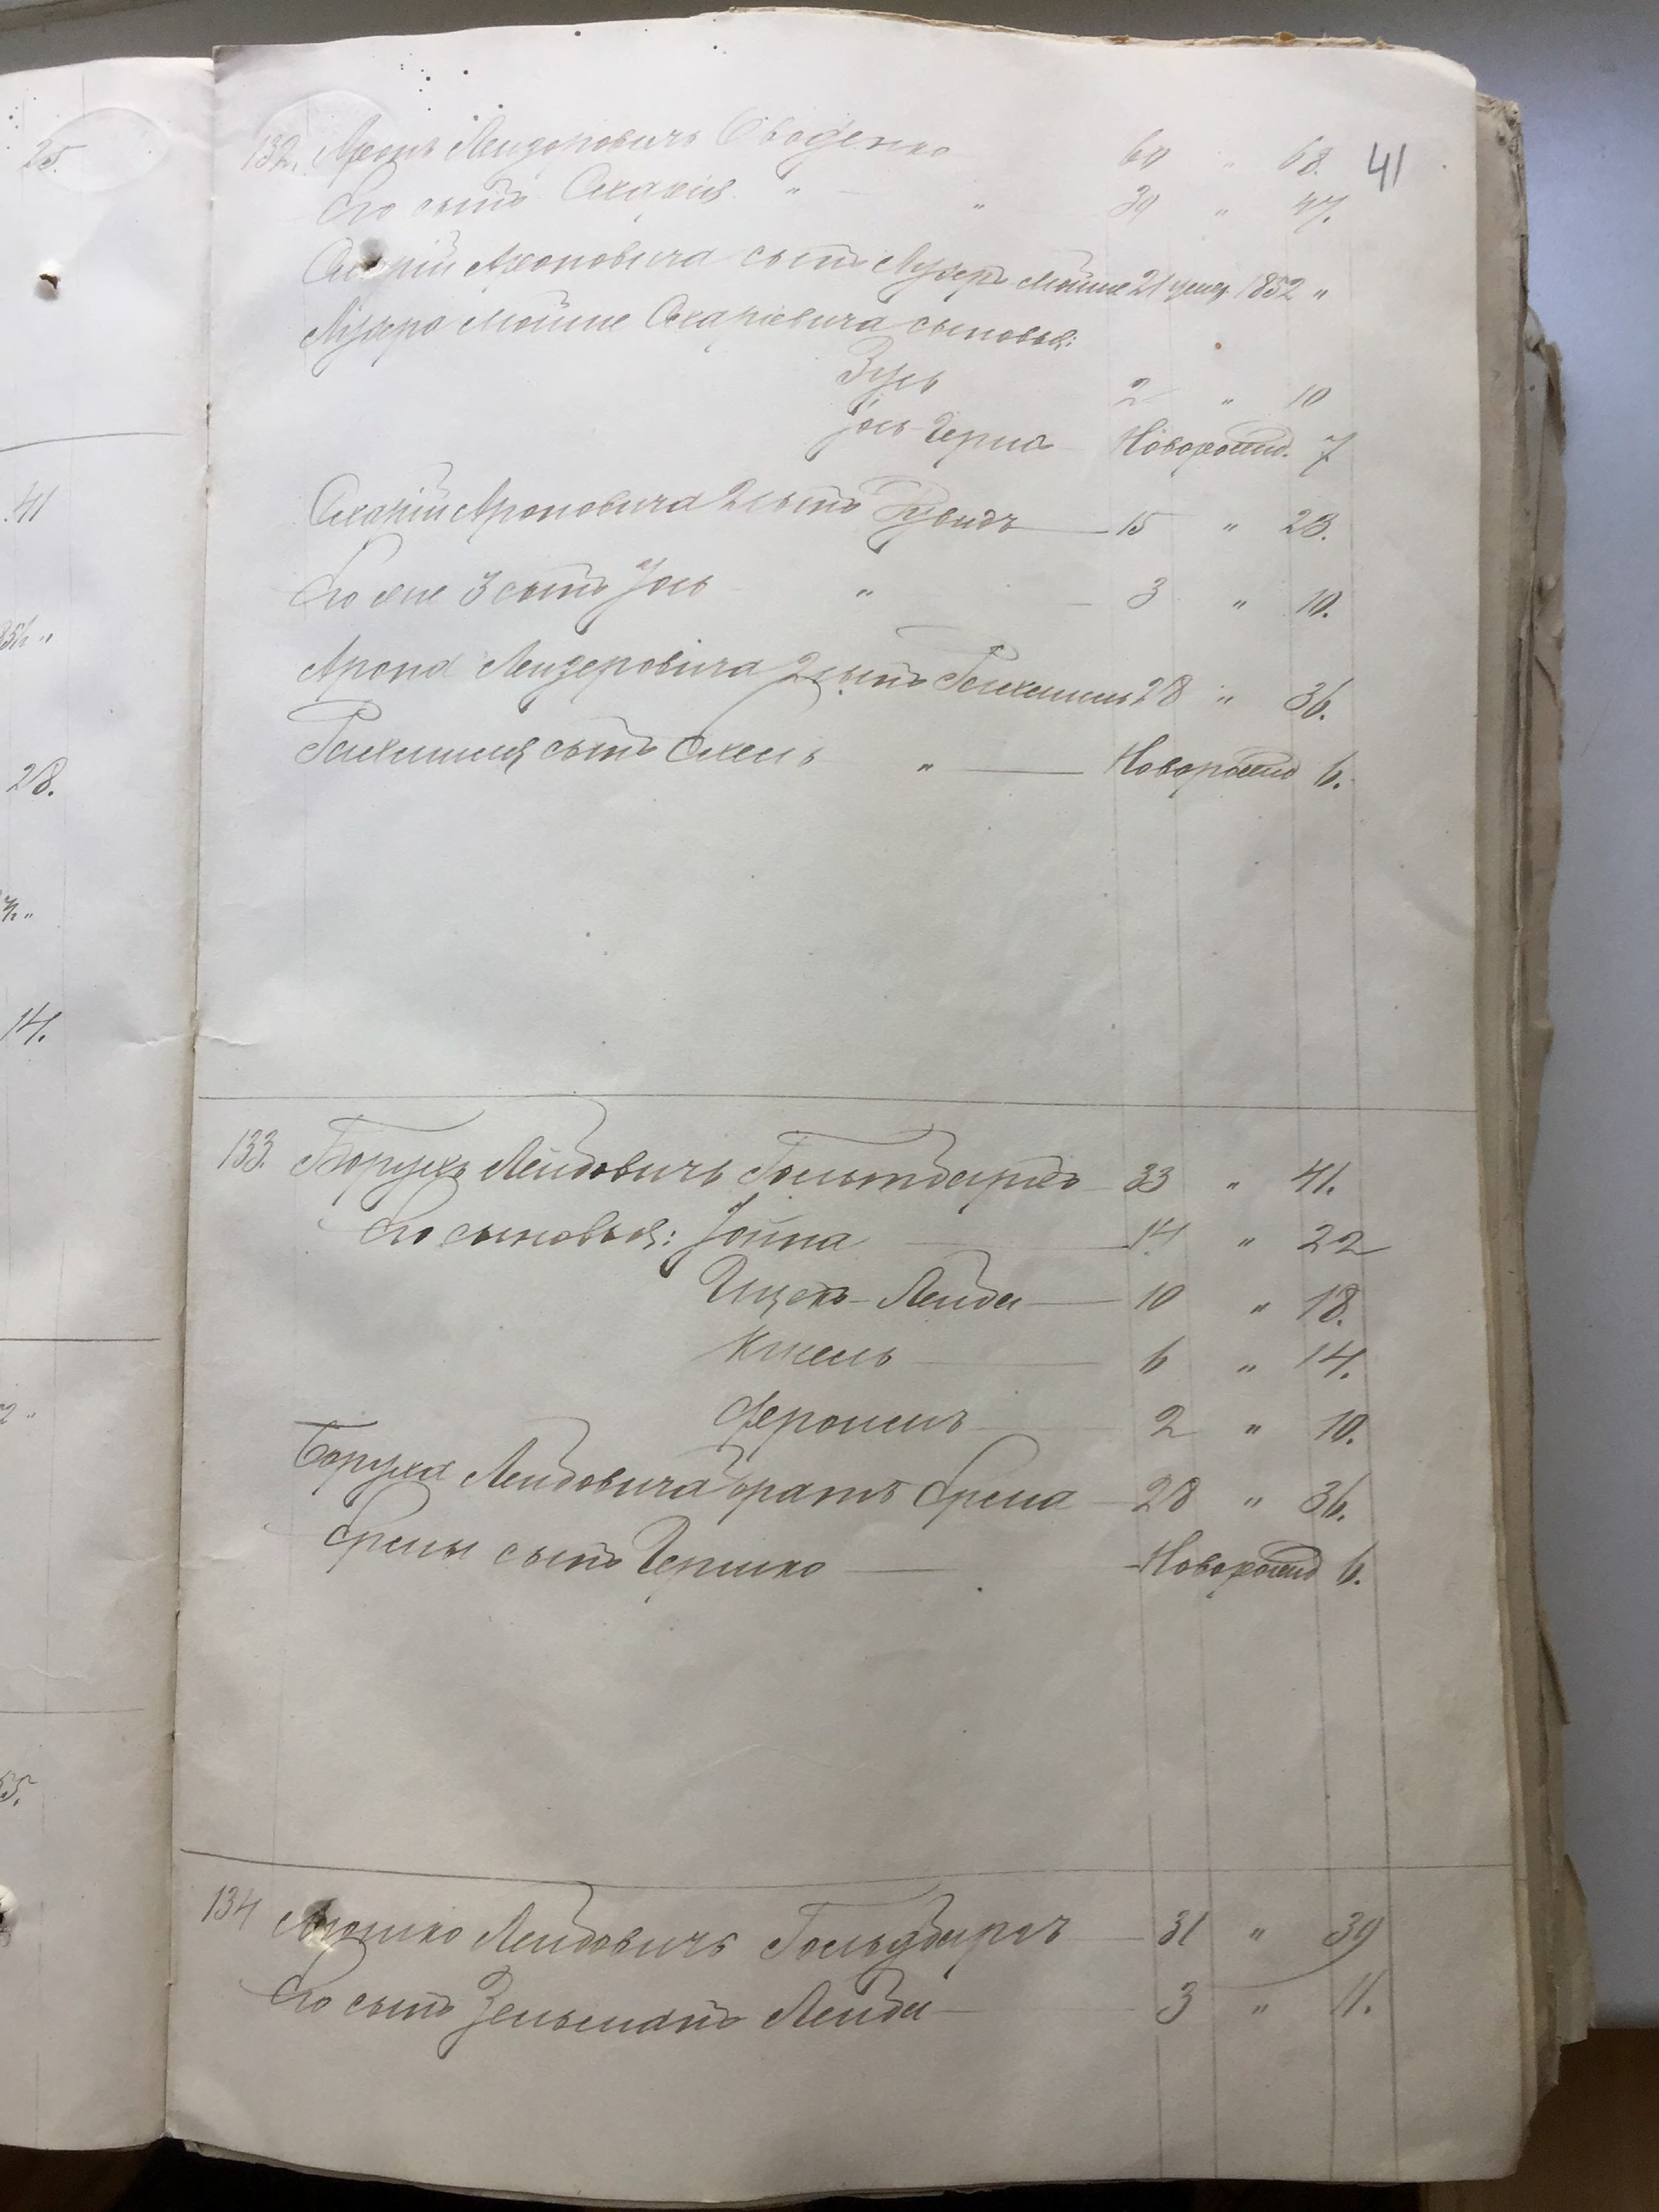 25.
41
28.
14.
132. Аронъ Лейзеровичъ Своденко 60 " 68. 41
Его сынъ Схарія " " 39 " 47.
Схарій Ароновича сынъ Лузеръ Мойше 21 умер. 1852 "
Лузера Мойше Схаріевича сыновья:
Зусь 2 " 10
Іось Герша Новорожд. 7
Схарій Ароновича 2 сынъ Рувидъ 15 " 23.
Его же 3 сынъ Іось " 3 " 10.
Арона Лейзеровича 2 сынъ 28 " 36.
сынъ " Новорожд 6.
133. Борухъ Лейбовичъ Гольтбаргъ 33 " 41.
Его сыновья: Іойна 14 " 22
Ицекъ-Лейба 10 " 18.
Кисель 6 " 14.
Фроимъ 2 " 10.
Боруха Лейбовича братъ Срема 28 " 36.
Сремы сынъ Гершко Новорожд 6.
134 Мошко Лейбовичъ Гольдбаргъ 31 " 39
Его сынъ Зельманъ Лейба 3 " 11.